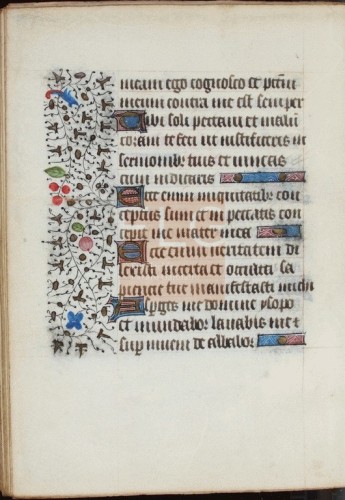 meam ego cognosco et pctm
meum contra me est semper
Tibi soli peccavi et malu
coram te feci ut iustificeris in
sermonibz tuis et vincas
cum iudicaris
Ecce enim iniquitatibz con
ceptus sum et in peccatis con
cepit me mater mea
Ecce enim veritatem di
lexisti incerta et occulta sa
pientie tue manifestasti michi
Asperges me domine ysopo
et mundabor lavabis me et
sup nivem de albabor